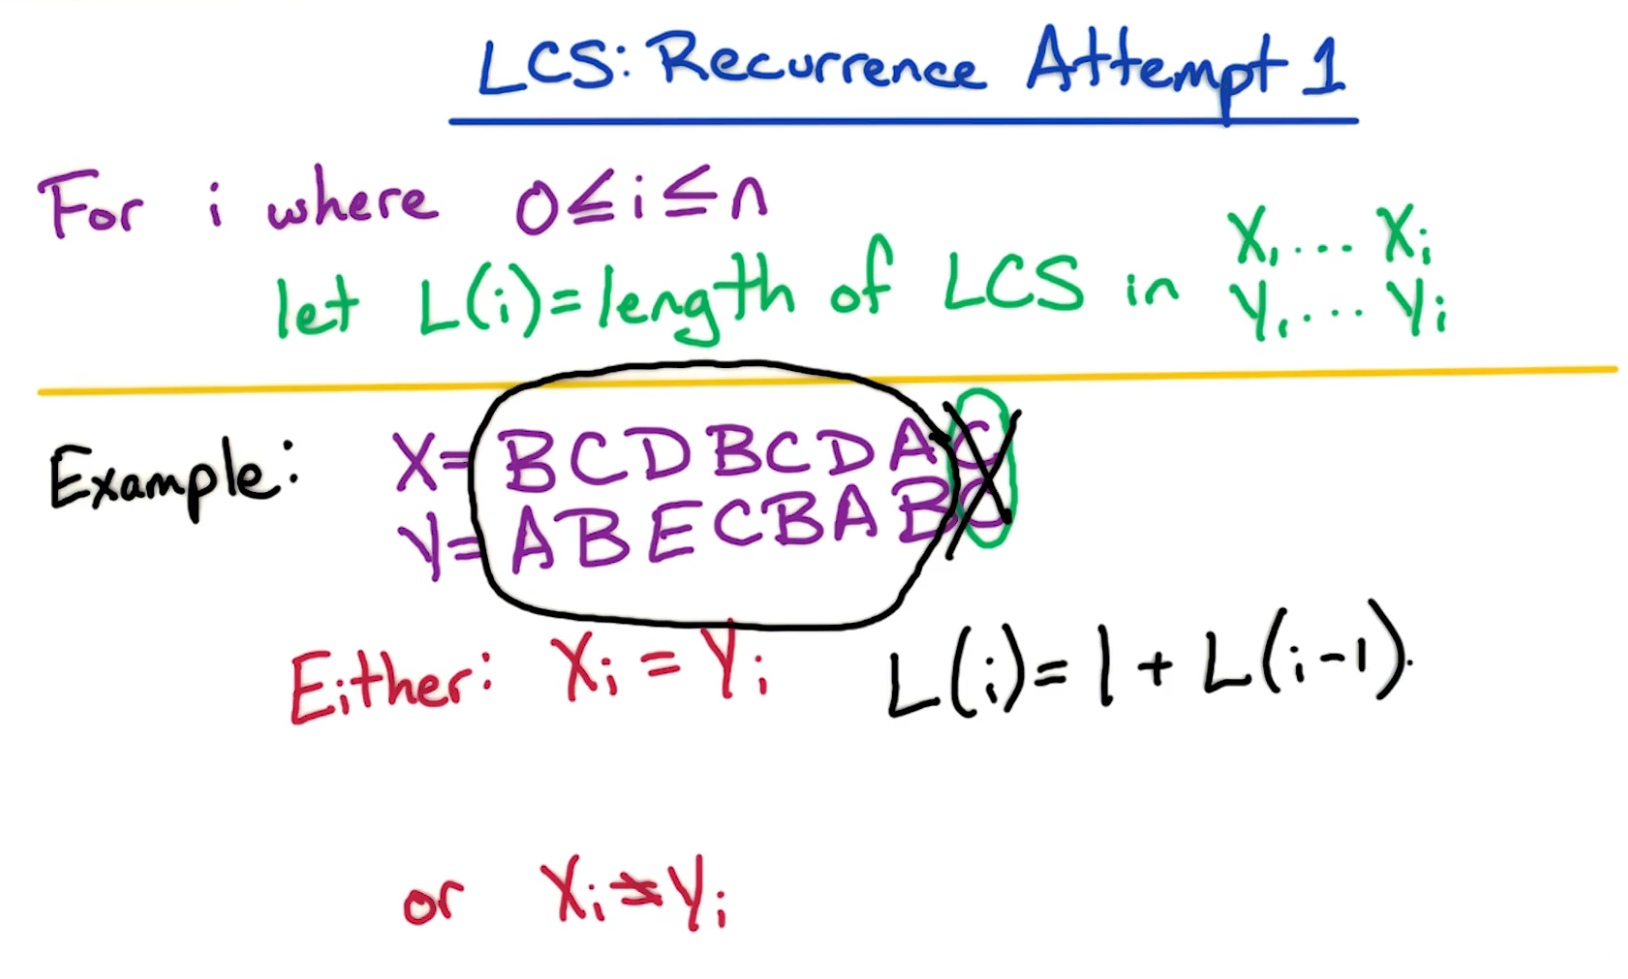 LCS: Recurrence Attempt 1
For i where 0 ≤ i ≤ n
let L(i) = length of LCS in X₁ ... Xᵢ
Y₁ ... Yᵢ
Example: X = B C D B C D A C
Y = A B E C B A B C
Either: Xᵢ = Yᵢ L(i) = 1 + L(i-1).
or Xᵢ ≠ Yᵢ